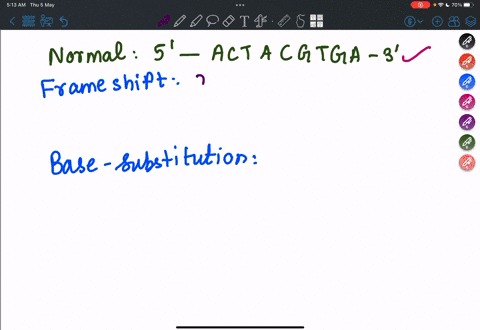 5:13 AM Thu 5 May
70%
Normal: 5' — ACTACGTGA - 3' ✓
Frame shift:
Base-substitution: